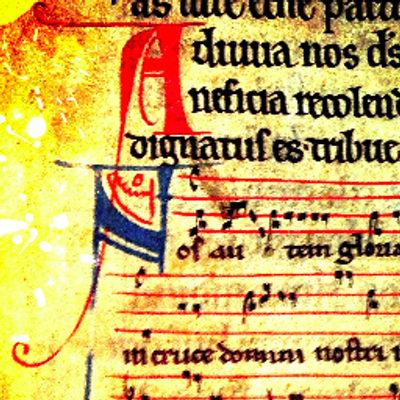 Adiuua nos ds
neficia recolen
dignatuſ es tribue
Nos au tem gloria
in cruce domini noſtri